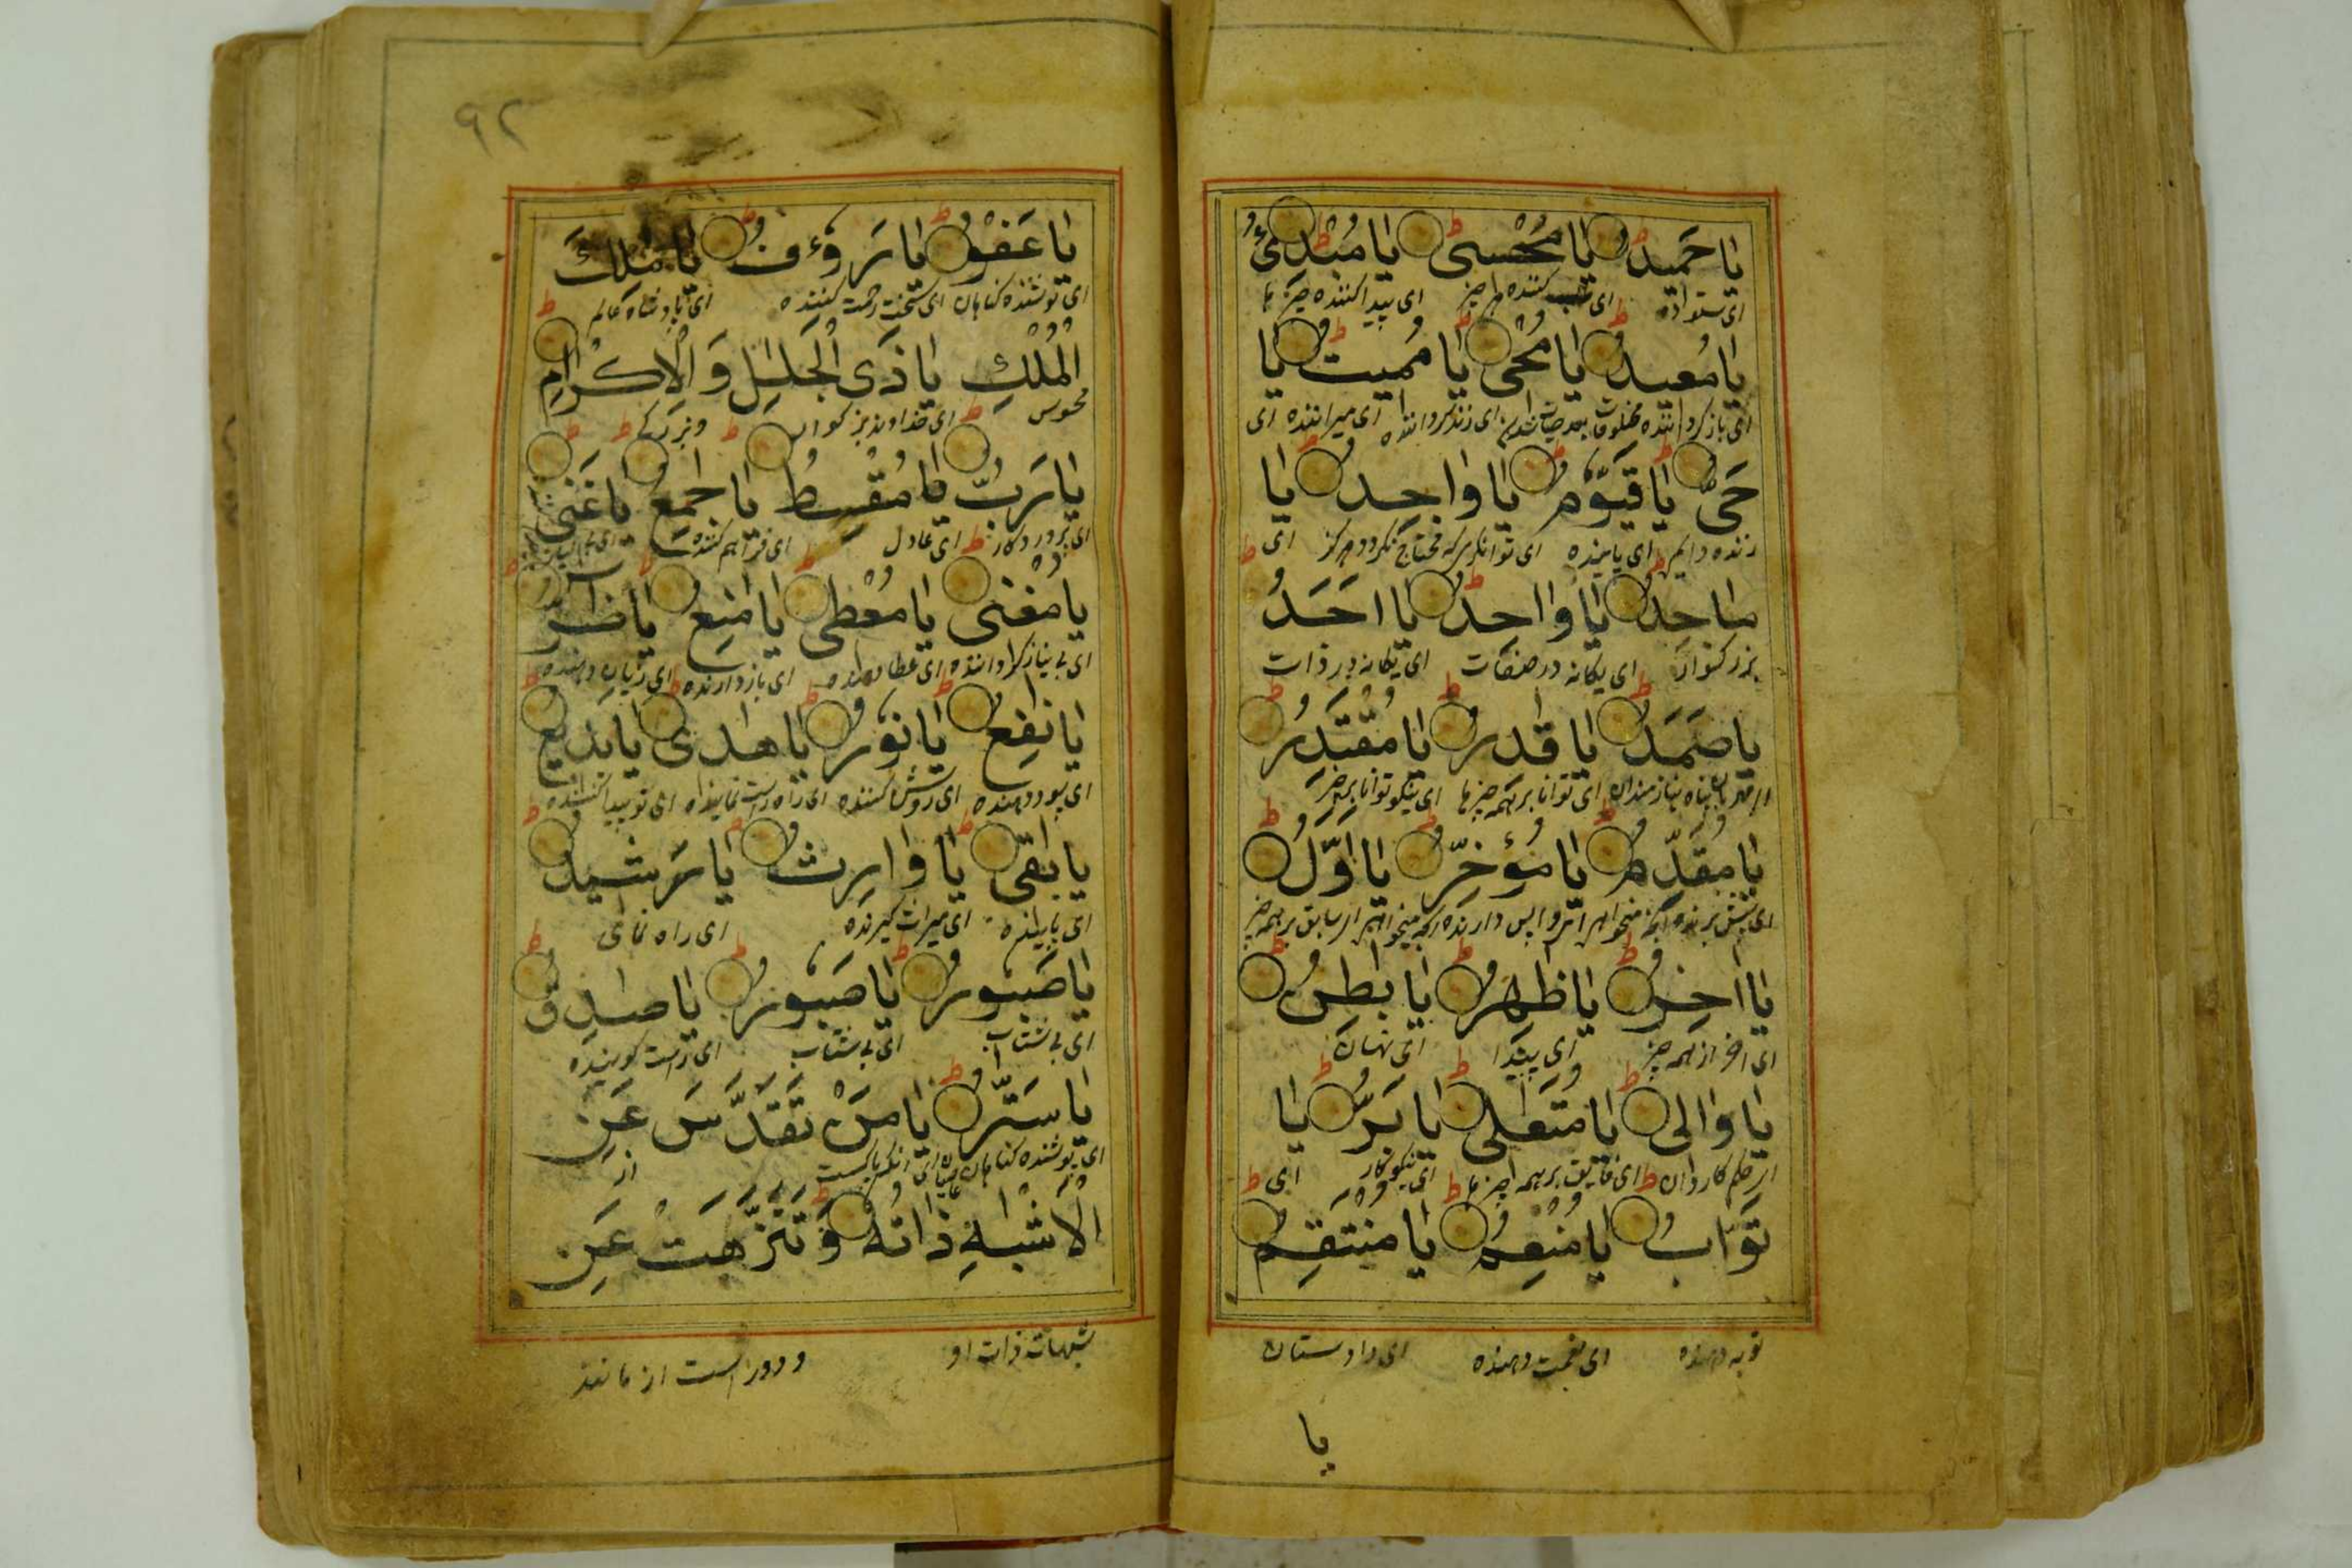 یا حَمِیدُ یا مُحْسی یا مُبْدِئُ
ای ستوده ای کننده هر چیز ای پیدا کننده چیزها
یا مُعِیدُ یا مُحْیی یا مُمِیتُ یا
ای باز گرداننده مخلوقات بعد ای زنده گرداننده ای میراننده ای
حَیُّ یا قَیُّومُ یا واجِدُ یا
زنده دایم ای پاینده ای توانگری که محتاج نگردد هرگز ای
ماجِدُ یا واحِدُ یا اَحَدُ
بزرگوار ای یگانه در صفات ای یگانه در ذات
یا صَمَدُ یا قٰدِرُ یا مُقْتَدِرُ
پناه نیازمندان ای توانا بر همه چیزها ای نیکو توانا بر هر چیز
یا مُقَدِّمُ یا مُؤَخِّرُ یا اَوَّلُ
ای پیش برنده سابق بر همه چیز
یا اخِرُ یا ظٰهِرُ یا بٰطِنُ
ای اخر از همه چیز ای پیدا ای نهان
یا والی یا مُتَعٰلی یا بَرُّ یا
کاردان ای فایق بر همه چیزها ای نیکوکار ای
تَوّابُ یا مُنْعِمُ یا مُنْتَقِمُ
توبه دهنده ای نعمت دهنده ای داد ستان
یا
۹۲
یا عَفُوُّ یا رَؤُفُ یا مٰلِکَ
ای پوشنده گناهان ای سخت رحمت کننده ای پادشاه عالم
الْمُلْكِ یا ذَی الْجَلٰلِ وَ الْاِكْرٰامِ
محسوس ای خداوند بزرگوار و بزرگی
یا رَبُّ یا مُقْسِطُ یا جٰمِعُ یا غَنِیُّ
ای پروردگار ای عادل ای فراهم کننده
یا مُغْنی یا مُعْطی یا مٰنِعُ یا ضٰرُّ
ای بی نیاز گرداننده ای عطا دهنده ای باز دارنده ای زیان دهنده
یا نٰفِعُ یا نُورُ یا هٰدی یا بَدیعُ
ای سود دهنده ای روشن کننده ای راه راست نماینده ای نو پیدا کننده
یا بٰقی یا وارِثُ یا رَشیدُ
ای پاینده ای میراث گیرنده ای راه نمای
یا صَبُورُ یا صَبُورُ یا صٰدِقُ
ای بی شتاب ای بی شتاب ای راست گوینده
یا سَتّٰرُ یا مَنْ تَقَدَّسَ عَنِ
ای پوشنده گناهان ای انکه پاکست از
الْاَشْبٰهِ ذاتُهُ وَ تَنَزَّهَتْ عَنْ
شبهات ذات او و دور است از مانند